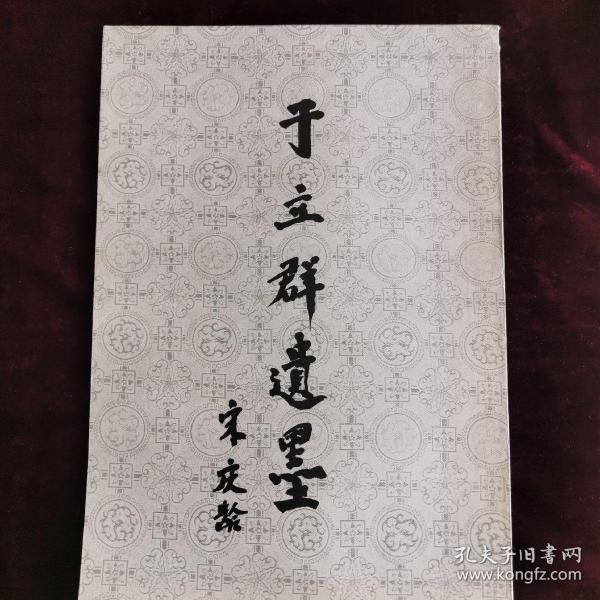 于立群遺墨
宋庆龄
孔夫子旧書网
www.kongfz.com